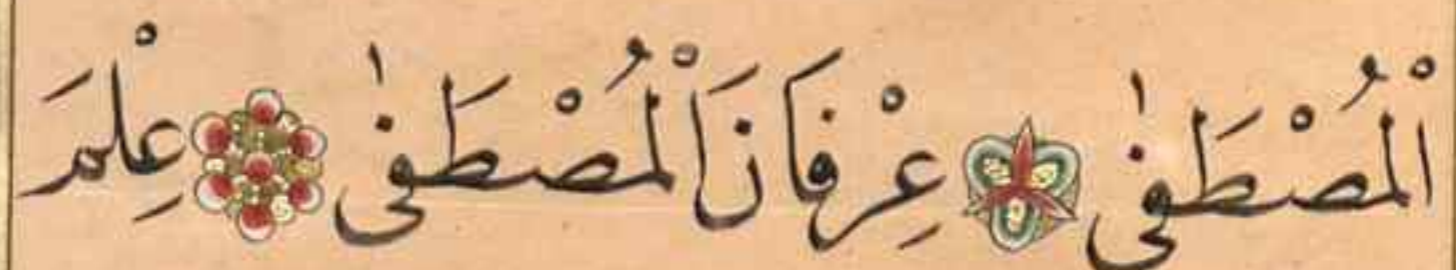 الْمُصْطَفٰى عِرْفَانَ الْمُصْطَفٰى عِلْمَ